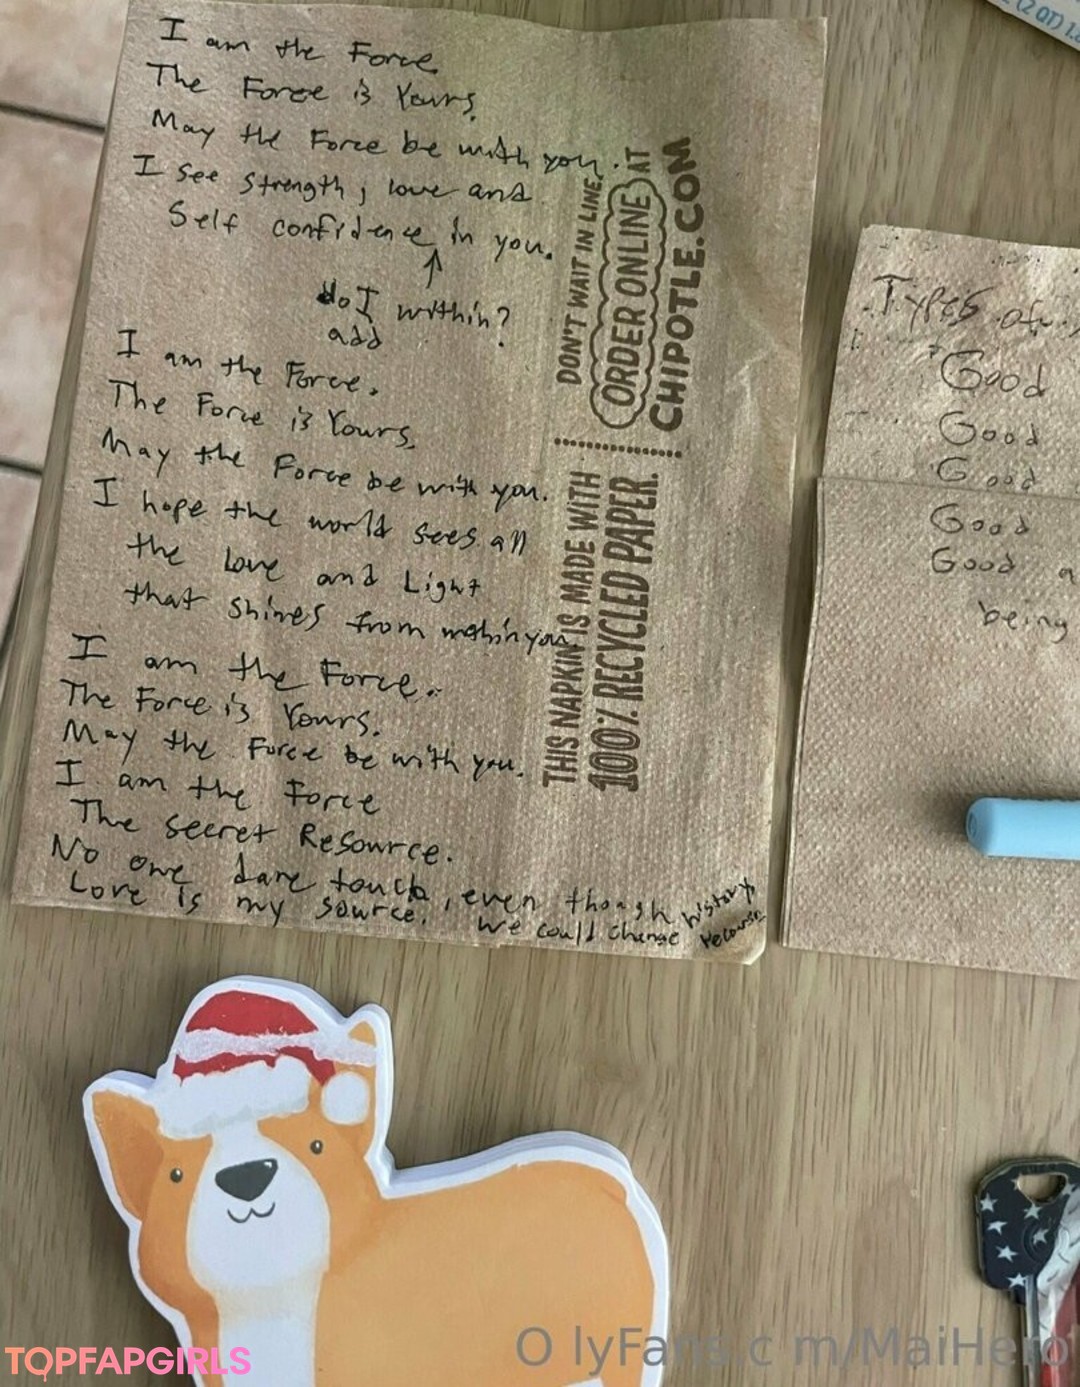 I am the Force
The Force is Yours.
May the Force be with you.
I see strength, love and
self confidence in you.
do I within?
add
I am the Force.
The Force is Yours.
May the Force be with you.
I hope the world sees all
the love and Light
that shines from within you.
I am the Force.
The Force is Yours.
May the Force be with you.
I am the Force
The secret Resource.
No one dare touch, even though
Love is my source. we could change history
DON'T WAIT IN LINE.
ORDER ONLINE AT
CHIPOTLE.COM
THIS NAPKIN IS MADE WITH
100% RECYCLED PAPER.
Types of
Good
Good
Good
Good
Good a
being
(2 QT) 1.
O lyFans.c m/MaiHero
TOPFAPGIRLS